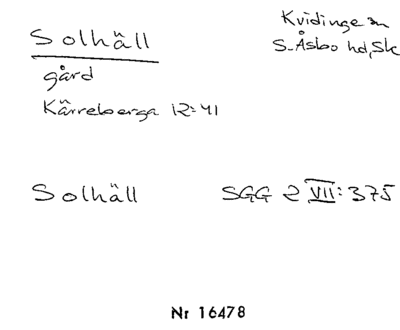 Solhäll
Kvidinge sn
S. Åsbo hd, Sk
gård
Kärreberga 12:41
Solhäll SGG 2 VII: 375
Nr 16478